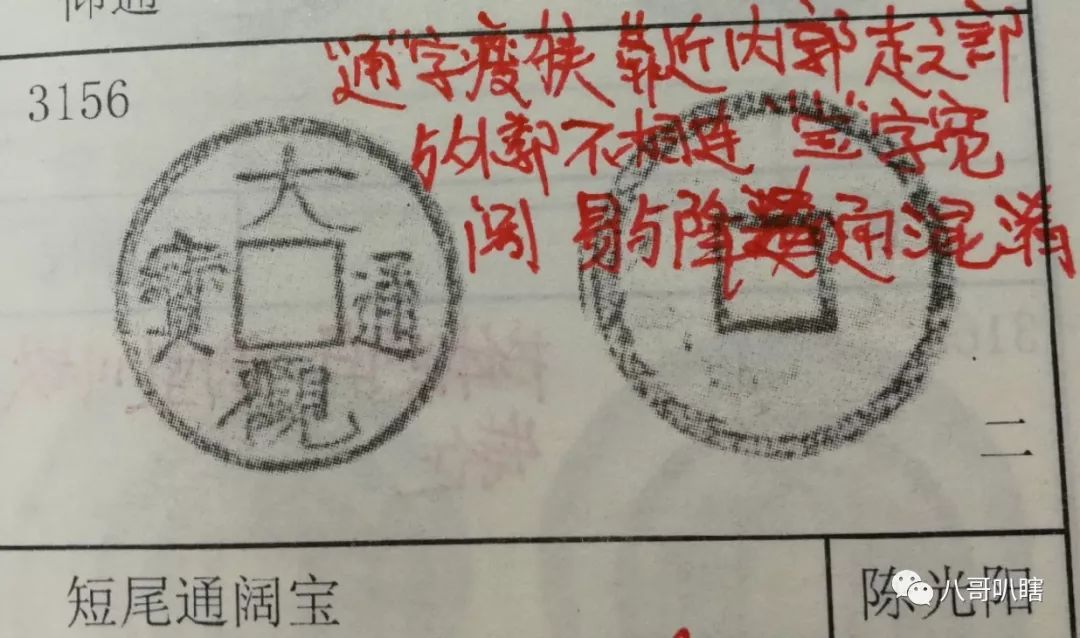 仰通
3156
“通”字瘦狭 靠近内郭 走之部
与外郭不相连 “宝”字宽
阔 易与降通混淆
大
寶 通
觀
二
短尾通阔宝
陈光阳
八哥叭瞎